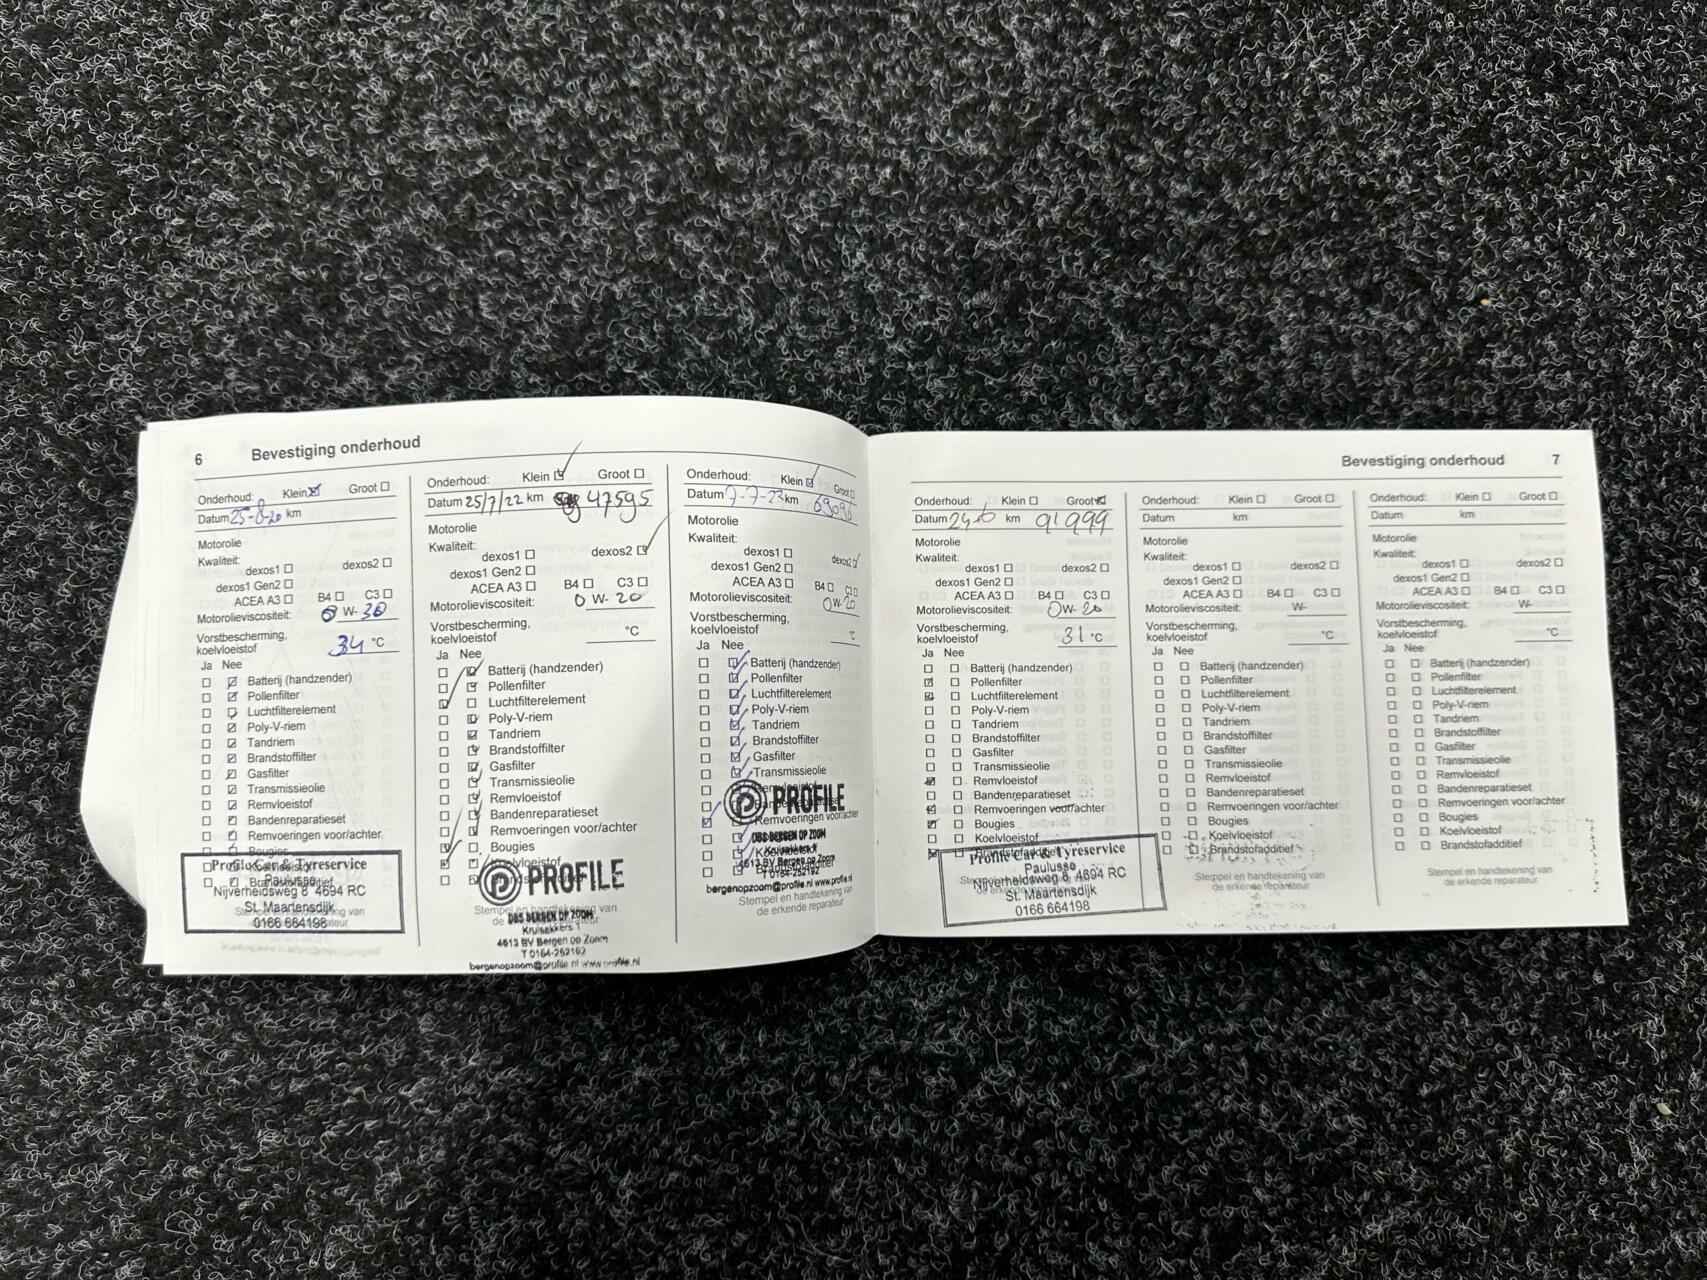 6 Bevestiging onderhoud
Onderhoud: Klein Groot
Datum 25-8-20 km
Motorolie
Kwaliteit:
dexos1 dexos2
dexos1 Gen2
ACEA A3 B4 C3
Motorolieviscositeit: 0 W- 30
Vorstbescherming,
koelvloeistof 34 °C
Ja Nee
Batterij (handzender)
Pollenfilter
Luchtfilterelement
Poly-V-riem
Tandriem
Brandstoffilter
Gasfilter
Transmissieolie
Remvloeistof
Bandenreparatieset
Remvoeringen voor/achter
Bougies
Koelvloeistof
Brandstofadditief
Stempel en handtekening van
de erkende reparateur
Profile Car & Tyreservice
Paulusse
Nijverheidsweg 8 4694 RC
St. Maartensdijk
0166 664198
Onderhoud: Klein Groot
Datum 25/7/22 km 47595
Motorolie
Kwaliteit:
dexos1 dexos2
dexos1 Gen2
ACEA A3 B4 C3
Motorolieviscositeit: 0 W- 20
Vorstbescherming,
koelvloeistof °C
Ja Nee
Batterij (handzender)
Pollenfilter
Luchtfilterelement
Poly-V-riem
Tandriem
Brandstoffilter
Gasfilter
Transmissieolie
Remvloeistof
Bandenreparatieset
Remvoeringen voor/achter
Bougies
Koelvloeistof
Stempel en handtekening van
de erkende reparateur
PROFILE
DBS BERGEN OP ZOOM
Kruisakkers 1
4613 BV Bergen op Zoom
T 0164-252192
bergenopzoom@profile.nl www.profile.nl
Onderhoud: Klein Groot
Datum 7-7-23 km
Motorolie
Kwaliteit:
dexos1 dexos2
dexos1 Gen2
ACEA A3 B4 C3
Motorolieviscositeit: 0 W- 20
Vorstbescherming,
koelvloeistof °C
Ja Nee
Batterij (handzender)
Pollenfilter
Luchtfilterelement
Poly-V-riem
Tandriem
Brandstoffilter
Gasfilter
Transmissieolie
Remvloeistof
Bandenreparatieset
Remvoeringen voor/achter
Koelvloeistof
Brandstofadditief
Stempel en handtekening van
de erkende reparateur
PROFILE
DBS BERGEN OP ZOOM
Kruisakkers 1
4613 BV Bergen op Zoom
T 0164-252192
bergenopzoom@profile.nl www.profile.nl
Bevestiging onderhoud 7
Onderhoud: Klein Groot
Datum km 91999
Motorolie
Kwaliteit:
dexos1 dexos2
dexos1 Gen2
ACEA A3 B4 C3
Motorolieviscositeit: 0 W- 20
Vorstbescherming,
koelvloeistof 31 °C
Ja Nee
Batterij (handzender)
Pollenfilter
Luchtfilterelement
Poly-V-riem
Tandriem
Brandstoffilter
Gasfilter
Transmissieolie
Remvloeistof
Bandenreparatieset
Remvoeringen voor/achter
Bougies
Koelvloeistof
Brandstofadditief
Stempel en handtekening van
de erkende reparateur
Profile Car & Tyreservice
Paulusse
Nijverheidsweg 8 4694 RC
St. Maartensdijk
0166 664198
Onderhoud: Klein Groot
Datum km
Motorolie
Kwaliteit:
dexos1 dexos2
dexos1 Gen2
ACEA A3 B4 C3
Motorolieviscositeit: W-
Vorstbescherming,
koelvloeistof °C
Ja Nee
Batterij (handzender)
Pollenfilter
Luchtfilterelement
Poly-V-riem
Tandriem
Brandstoffilter
Gasfilter
Transmissieolie
Remvloeistof
Bandenreparatieset
Remvoeringen voor/achter
Bougies
Koelvloeistof
Brandstofadditief
Stempel en handtekening van
de erkende reparateur
Onderhoud: Klein Groot
Datum km
Motorolie
Kwaliteit:
dexos1 dexos2
dexos1 Gen2
ACEA A3 B4 C3
Motorolieviscositeit: W-
Vorstbescherming,
koelvloeistof °C
Ja Nee
Batterij (handzender)
Pollenfilter
Luchtfilterelement
Poly-V-riem
Tandriem
Brandstoffilter
Gasfilter
Transmissieolie
Remvloeistof
Bandenreparatieset
Remvoeringen voor/achter
Bougies
Koelvloeistof
Brandstofadditief
Stempel en handtekening van
de erkende reparateur